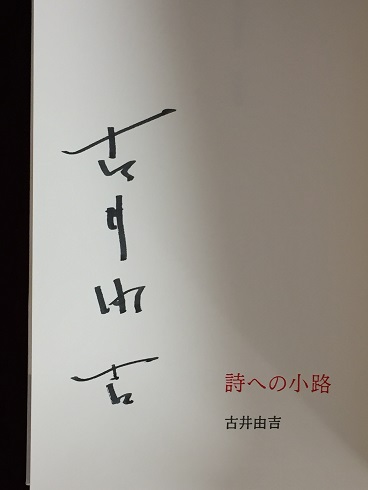 古井由吉
詩への小路
古井由吉